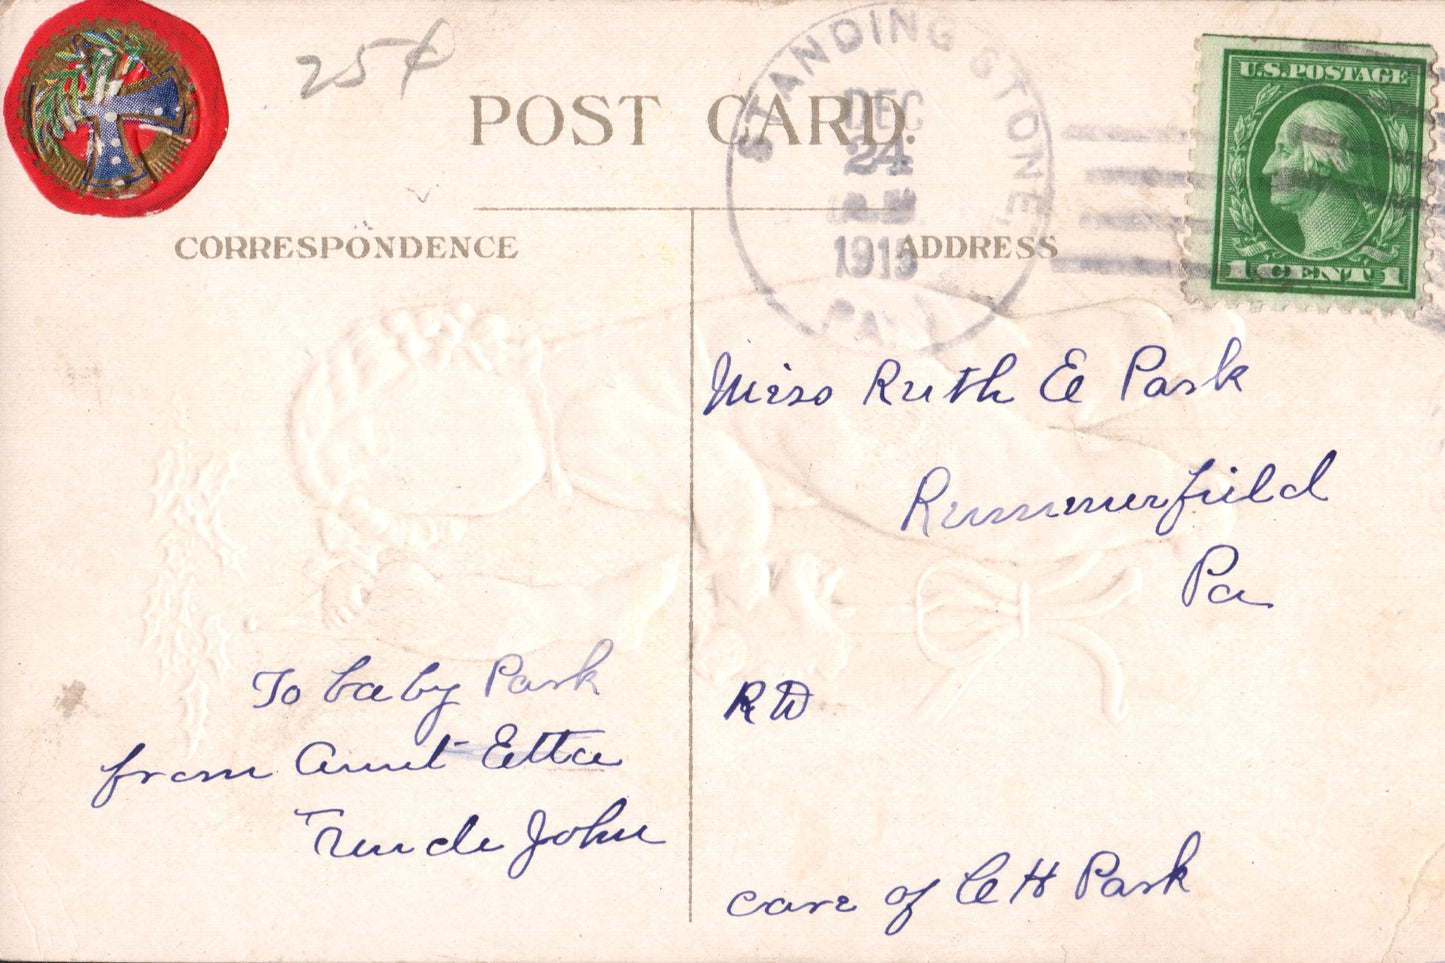 25¢
POST CARD.
STANDING STONE,
DEC
24
1915
PA.
U.S.POSTAGE
1 CENT 1
CORRESPONDENCE
ADDRESS
Miss Ruth E Park
Rummerfield
Pa
R D
care of C H Park
To baby Park
from Aunt Etta
Uncle John